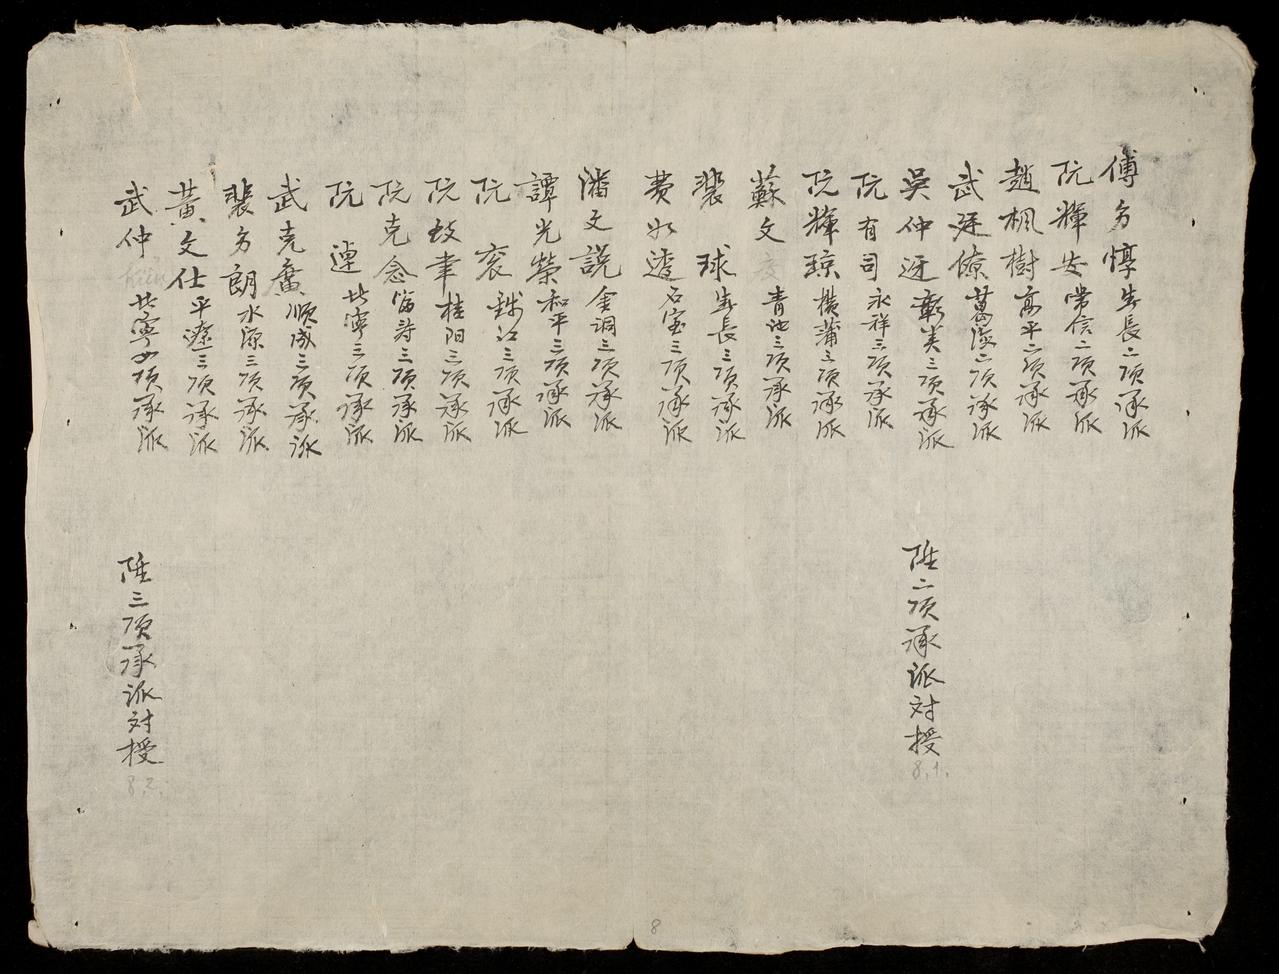 傅多惇岀長二項承派
阮輝安常信二項承派
趙楓樹高平二項承派
武廷僚葛溪二項承派
吳仲迓彰美三項承派
陞二項承派対授
8.1.
阮有司永祥三項承派
阮輝琼橫蒲三項承派
蘇文 青池三項承派
裴球岀長三項承派
費必透石室三項承派
潘文説金洞三項承派
譚光榮和平三項承派
阮衮錦江三項承派
阮致聿桂阳三項承派
阮克念富寿三項承派
阮連北寧三項承派
武克廣順成三項承派
裴多朗水源三項承派
黃文仕平遼三項承派
武仲 北寧四項承派
陞三項承派対授
8.2.
8